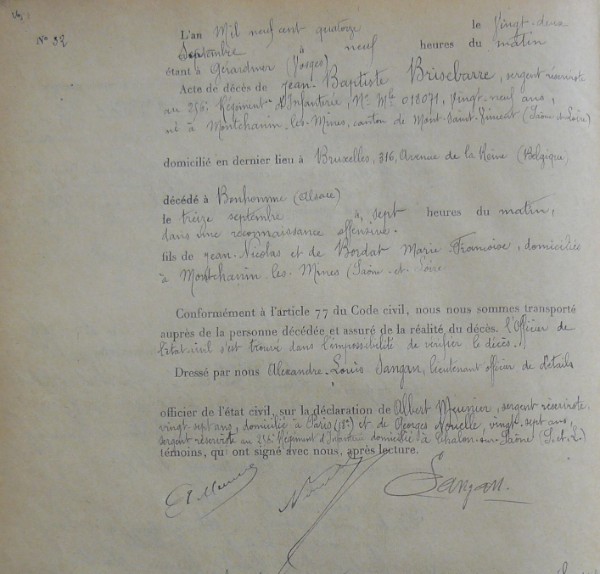 No 32
L'an Mil neuf cent quatorze le Vingt-deux
Septembre à neuf heures du matin
étant à Gérardmer (Vosges)
Acte de décès de Jean-Baptiste Brisebarre, sergent réserviste
au 256e Régiment d'Infanterie, No Mle 018071, vingt-neuf ans,
né à Montchanin-les-Mines, canton de Mont-Saint-Vincent (Saône-et-Loire)
domicilié en dernier lieu à Bruxelles, 316, Avenue de la Reine (Belgique)
décédé à Bonhomme (Alsace)
le treize septembre à sept heures du matin,
dans une reconnaissance offensive.
fils de Jean-Nicolas et de Bordat Marie-Françoise, domiciliés
à Montchanin-les-Mines (Saône-et-Loire
Conformément à l'article 77 du Code civil, nous nous sommes transporté
auprès de la personne décédée et assuré de la réalité du décès. l'Officier de
l'état-civil s'est trouvé dans l'impossibilité de vérifier le décès.
Dressé par nous Alexandre-Louis Sangan, lieutenant officier de détails
officier de l'état civil, sur la déclaration de Albert Meunier, sergent réserviste,
vingt-sept ans, domicilié à Paris et de Georges Nouelle, vingt-sept ans,
sergent réserviste au 256e Régiment d'Infanterie domicilié à Chalon-sur-Saône (S.-et-L.)
témoins, qui ont signé avec nous, après lecture.
Sangan.